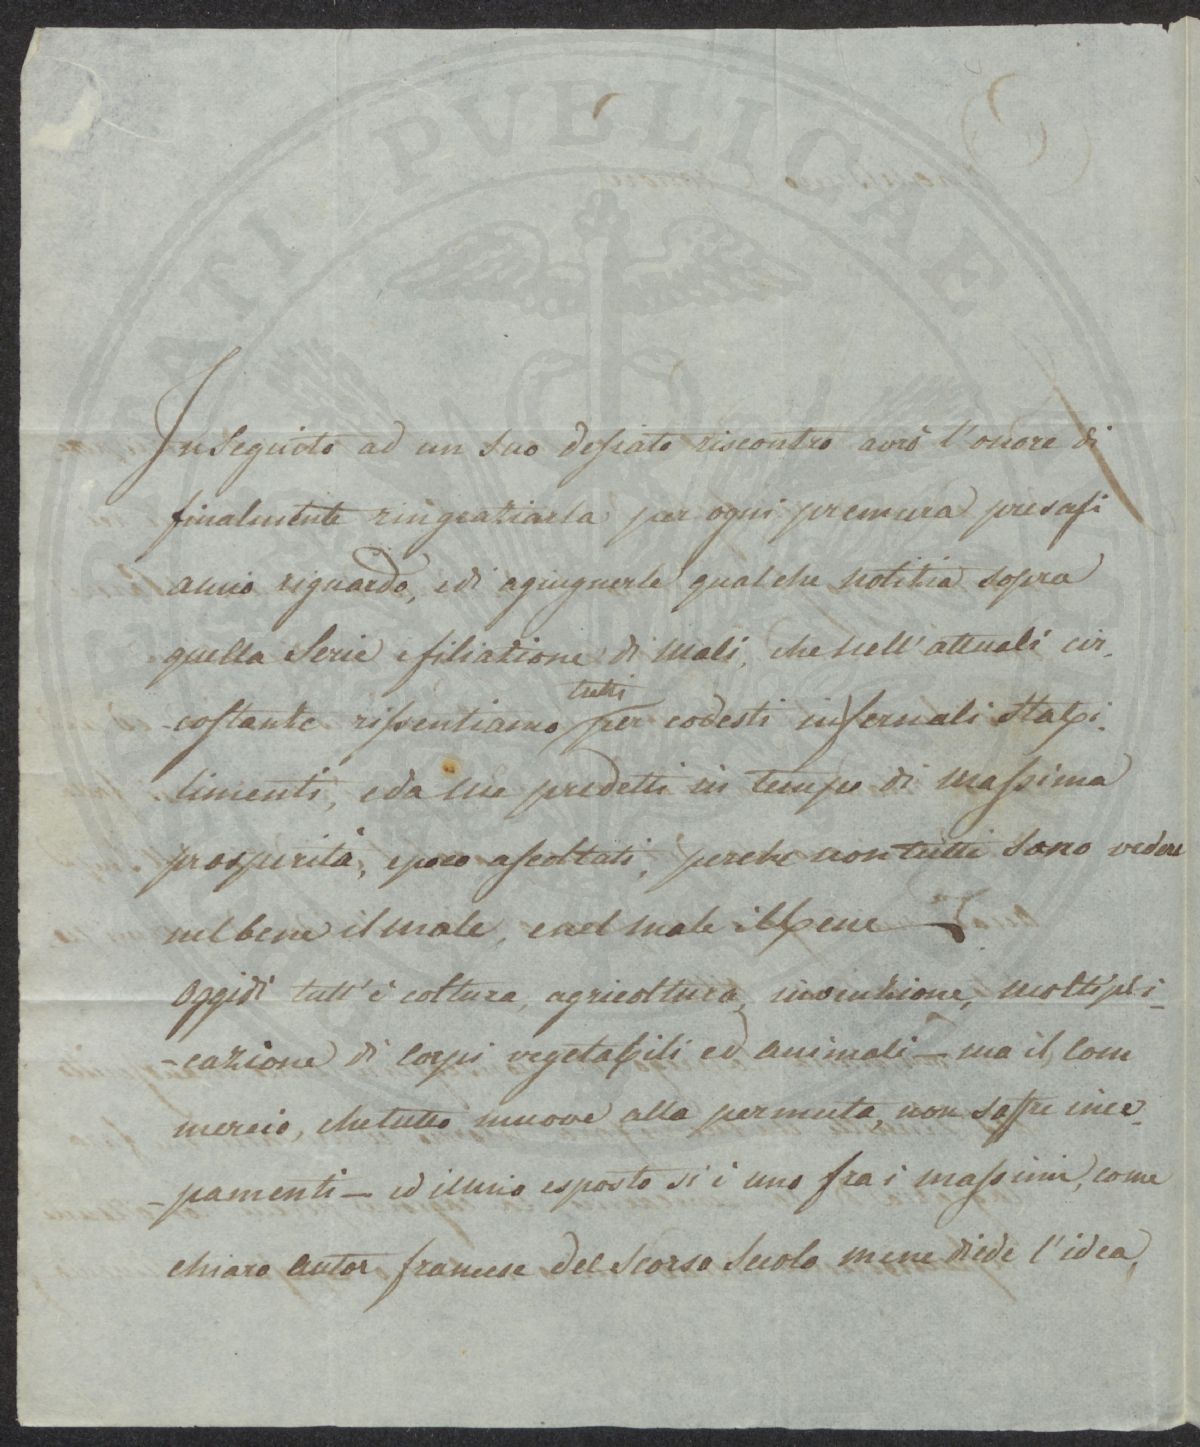 PVBLICAE
In Seguito ad un suo desiato riscontro avrò l'onore di
finalmente ringraziarla per ogni premura presasi
a mio riguardo, e di agiugnerle qualche notitia sopra
quella Serie e filiazione di mali, che nell'attuali cir-
-costante risentiamo tutti per codesti infernali Stabi-
limenti, e da me predetti in tempo di massima
prosperità, e poco ascoltati, perche non tutti sano vedere
nel bene il male, e nel male il bene
Oggidi tutt'è coltura, agricoltura, invenzione, moltipli-
-cazione di Corpi vegetabili ed animali — ma il Com
mercio, che tutto muove alla permuta, non sofre ince-
-pamenti — ed il mio esposto si è uno fra i massimi, come
chiaro autor francese del Scorso Secolo mene diede l'idea,